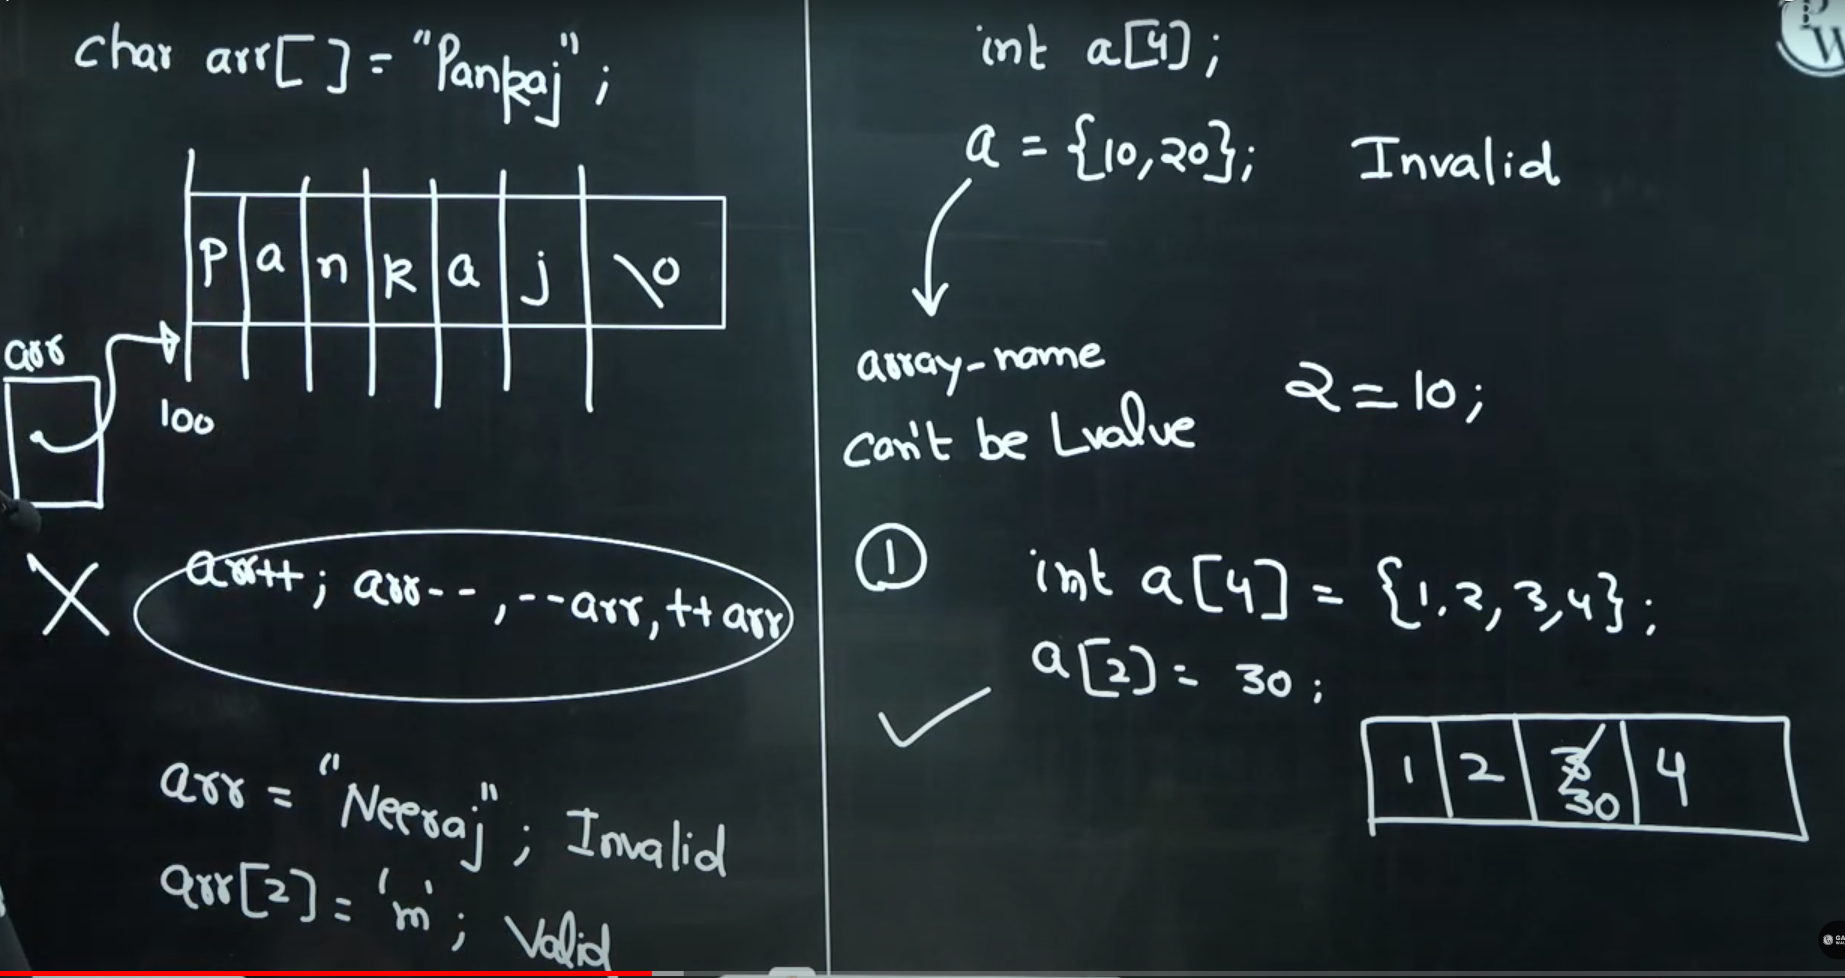 char arr[ ] = "Pankaj";
P a n k a j \0
arr
100
X arr++; arr--, --arr, ++arr
arr = "Neeraj"; Invalid
arr[2] = 'm'; Valid
int a[4];
a = {10,20}; Invalid
array-name
can't be Lvalue
2 = 10;
① int a[4] = {1,2,3,4};
a[2] = 30;
1 2 3 4
30
PW